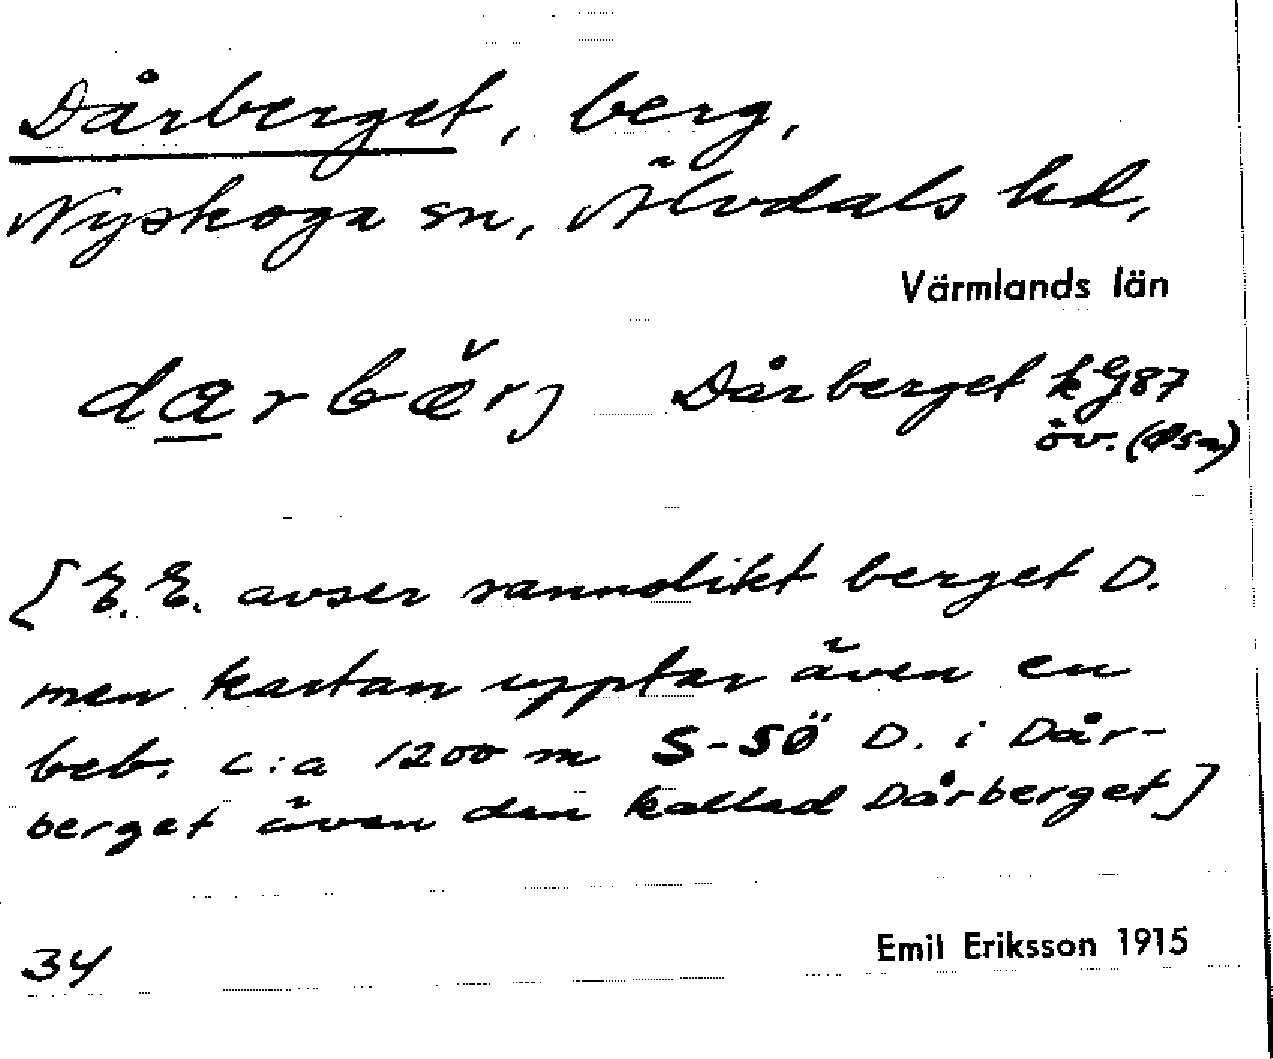 Dårberget, berg,
Nyskoga sn, Älvdals hd,
Värmlands län
darbærj Dårberget kg87
öv.
[E.E. avser sannolikt berget D.
men kartan upptar även en
beb. c:a 1200 m S-SÖ D. i Dår-
berget även den kallad Dårberget]
34
Emil Eriksson 1915